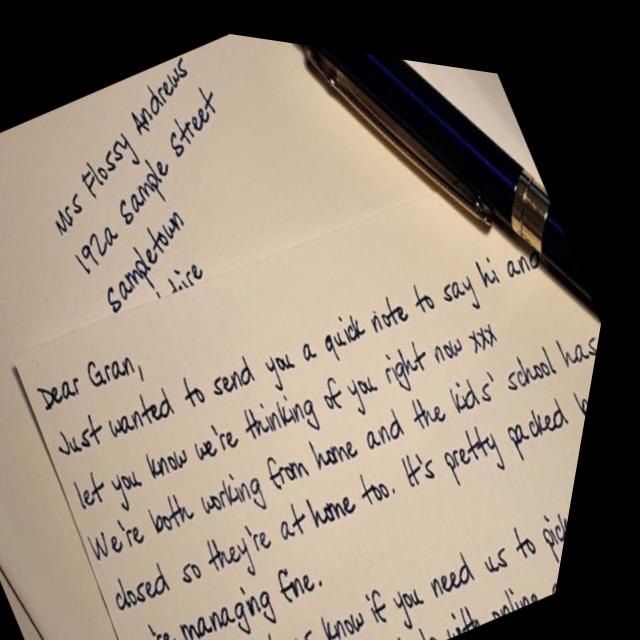 Mrs Flossy Andrews
192a Sample Street
Sampletown
Dear Gran,
Just wanted to send you a quick note to say hi and
let you know we're thinking of you right now xxx
We're both working from home and the kids' school has
closed so they're at home too. It's pretty packed
managing fine.
know if you need us to pick
online